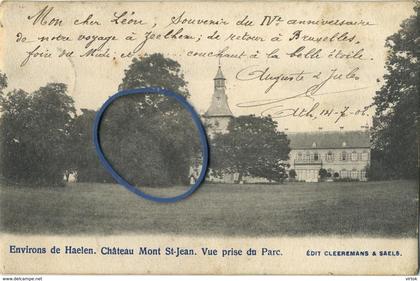 Mon cher Léon, Souvenir du IVᵐᵉ anniversaire
de notre voyage à Zeelhem; de retour à Bruxelles,
foire du Midi, et couchant à la belle étoile.
Auguste & Jules
Ath, 14-7-03
Environs de Haelen. Château Mont St-Jean. Vue prise du Parc.
ÉDIT CLEEREMANS & SAELS.